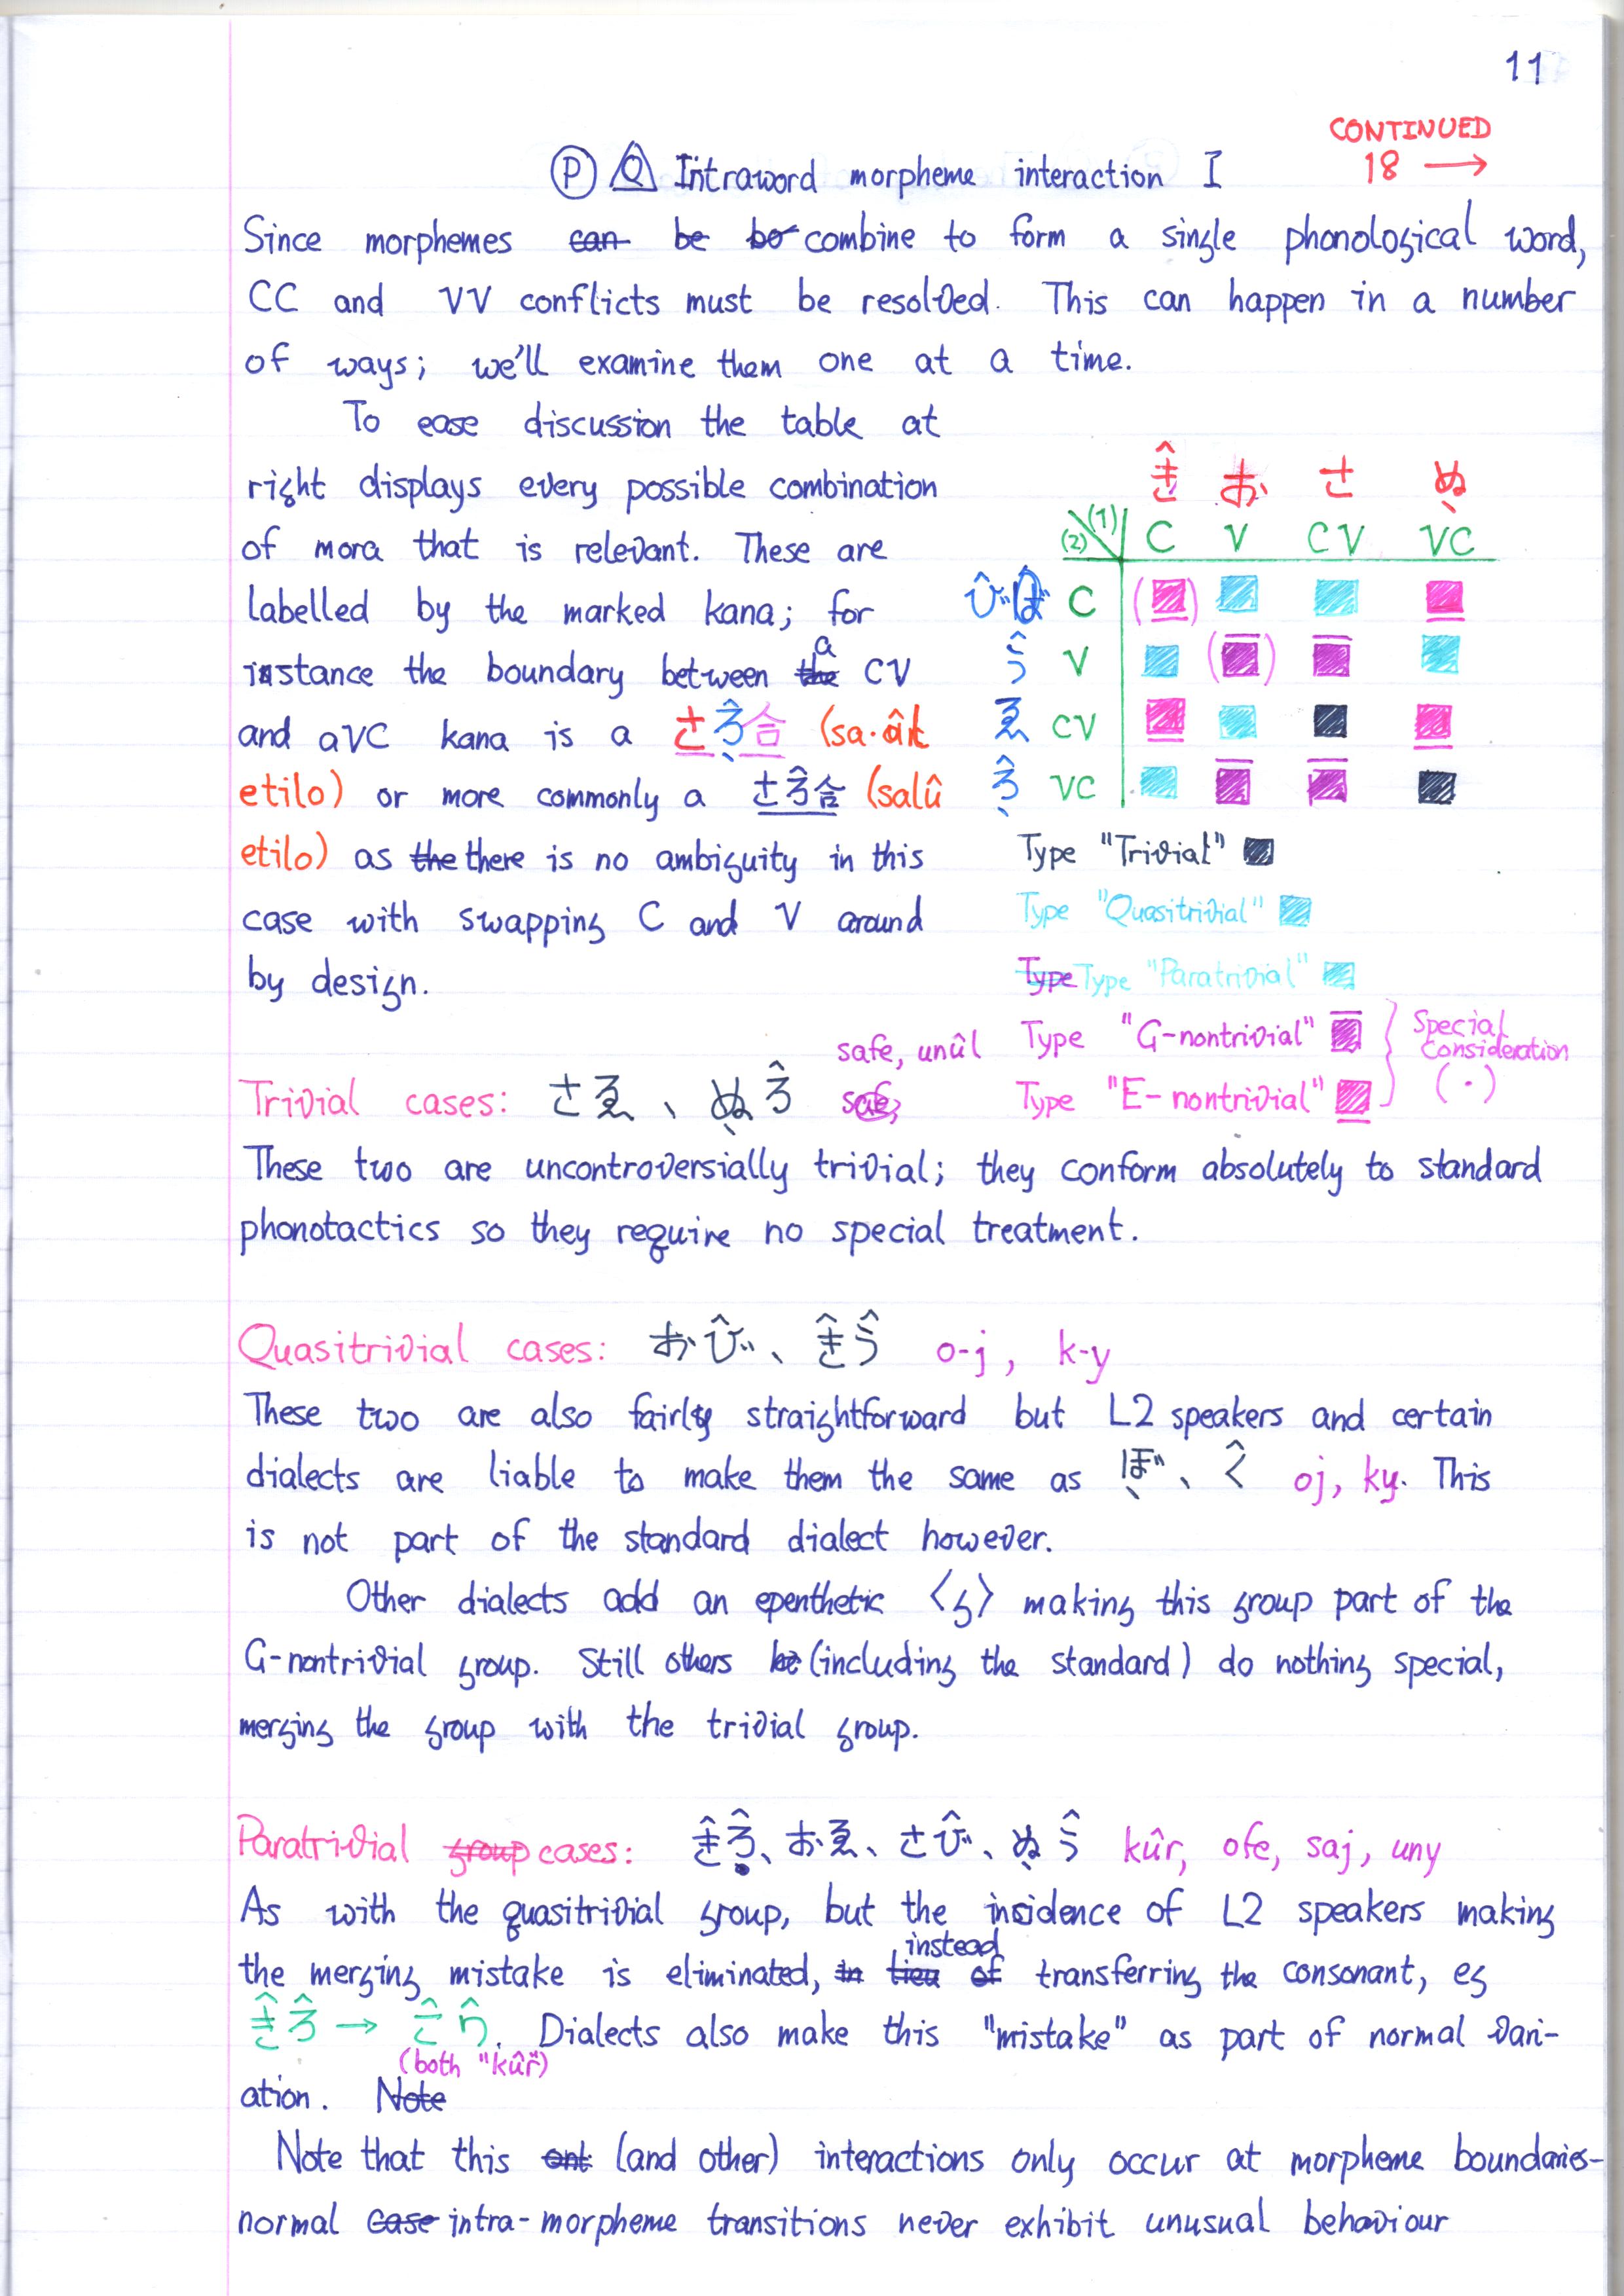 11
CONTINUED
18 →
Ⓟ Q Intraword morpheme interaction I
Since morphemes can be bo combine to form a single phonological word,
CC and VV conflicts must be resolved. This can happen in a number
of ways; we'll examine them one at a time.
To ease discussion the table at
right displays every possible combination
of mora that is relevant. These are
labelled by the marked kana; for
instance the boundary between the a CV
and a VC kana is a さろ̂合 (sa·ârk
etilo) or more commonly a さろ̂合 (salû
etilo) as the there is no ambiguity in this
case with swapping C and V around
by design.
き̂ お さ ぬ
(2) (1) C V CV VC
び̂ C
う̂ V
ゑ CV
ろ̂ VC
Type "Trivial"
Type "Quasitrivial"
Type Type "Paratrivial"
Type "G-nontrivial"
Type "E-nontrivial"
Special
Consideration
(·)
safe, unûl
Trivial cases: さゑ、ぬろ̂
These two are uncontroversially trivial; they conform absolutely to standard
phonotactics so they require no special treatment.
Quasitrivial cases: おび̂、き̂う̂ o-j, k-y
These two are also fairly straightforward but L2 speakers and certain
dialects are liable to make them the same as ぼ、く̂ oj, ky. This
is not part of the standard dialect however.
Other dialects add an epenthetic ⟨g⟩ making this group part of the
G-nontrivial group. Still others be (including the standard) do nothing special,
merging the group with the trivial group.
Paratrivial group cases: き̂ろ̂、おゑ、さび̂、ぬう̂ kûr, ofe, saj, uny
As with the quasitrivial group, but the incidence of L2 speakers making
the merging mistake is eliminated, in lieu of instead transferring the consonant, eg
き̂ろ̂ → こ̂り̂. Dialects also make this "mistake" as part of normal vari-
(both "kûr")
ation. Note
Note that this ont (and other) interactions only occur at morpheme boundaries-
normal case intra-morpheme transitions never exhibit unusual behaviour